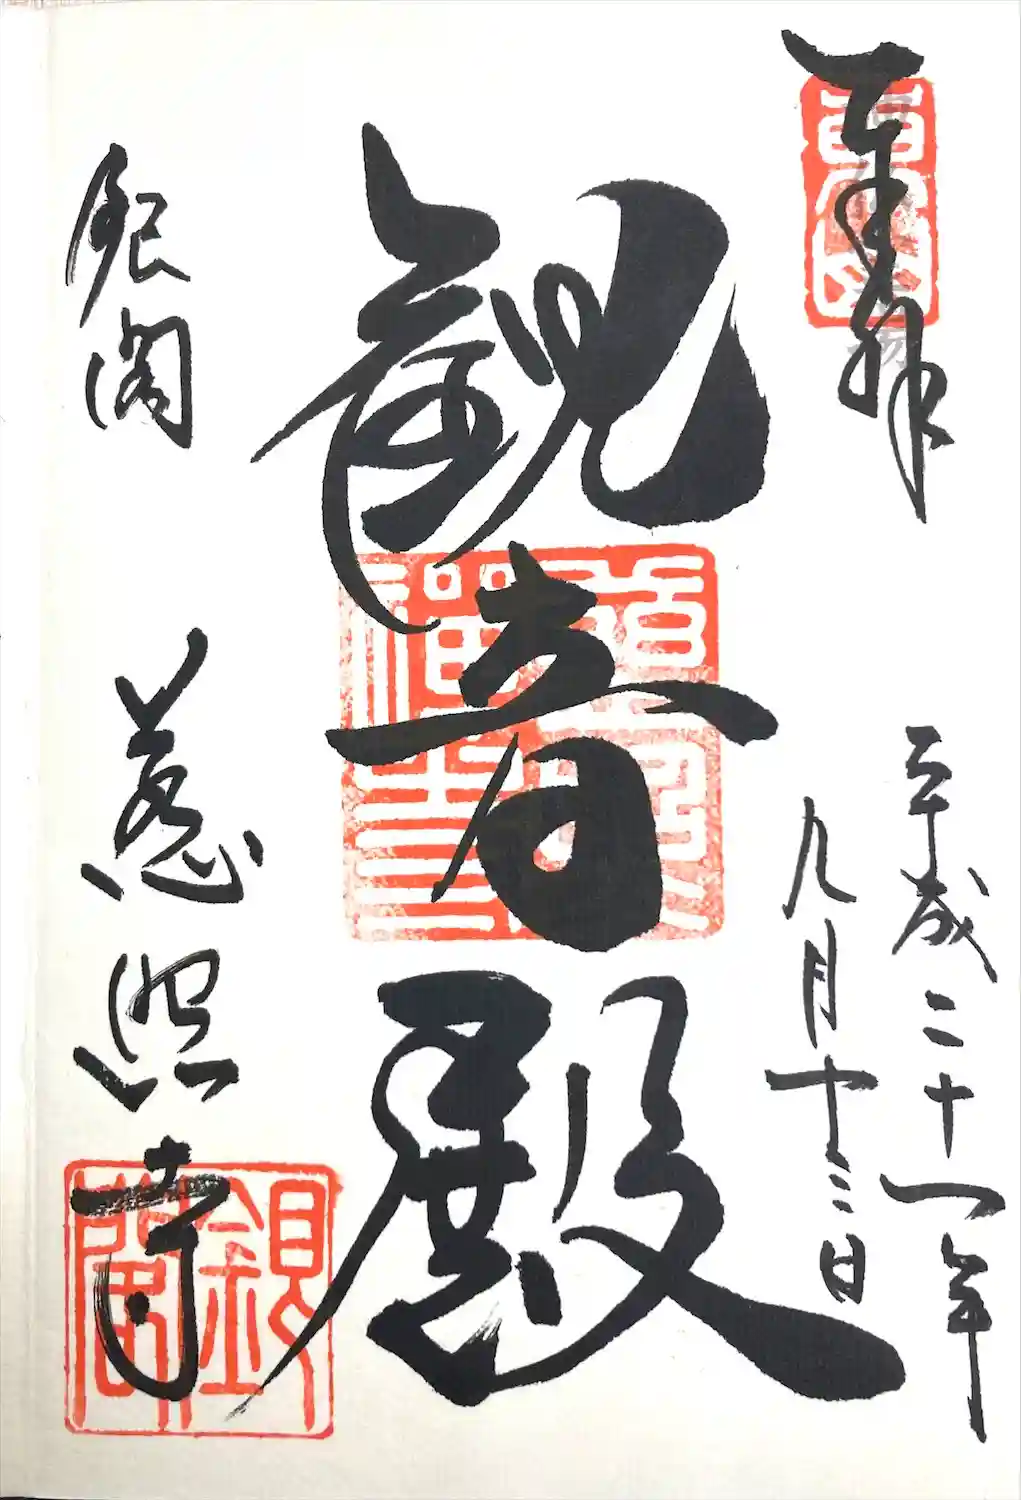 奉拝
平成二十一年
九月十三日
観音殿
銀閣 慈照寺
銀閣